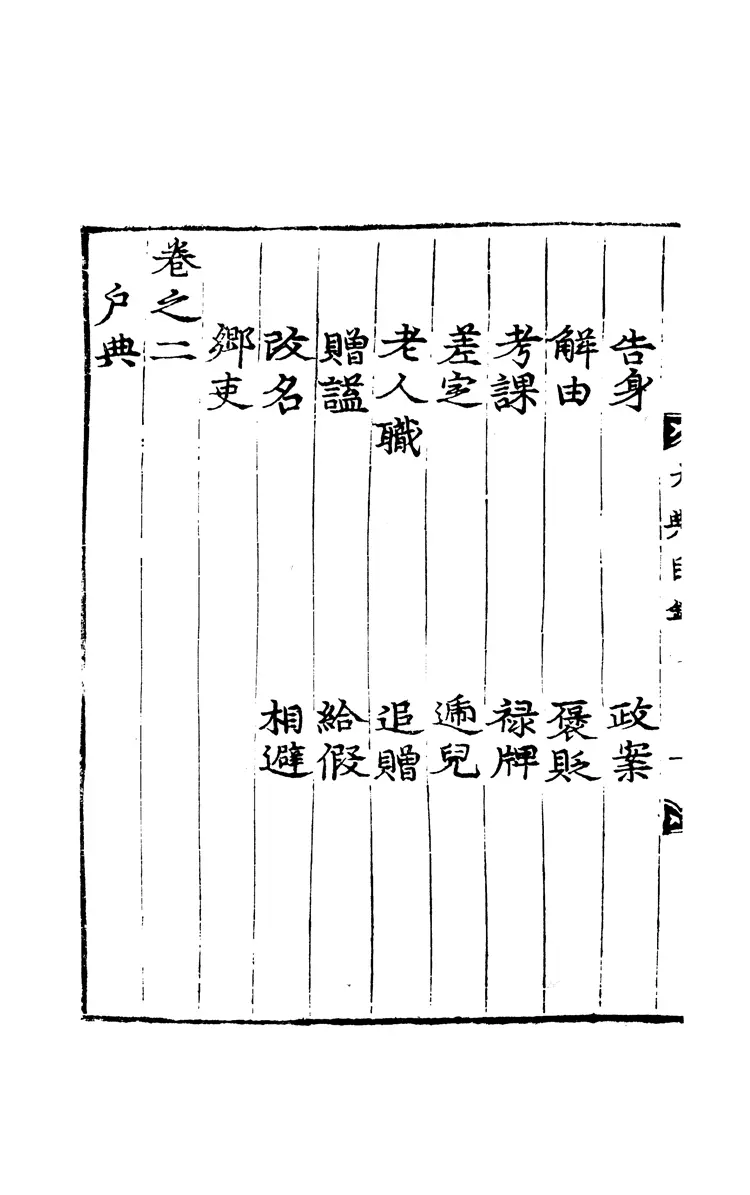 告身 政案
解由 褒貶
考課 祿牌
差定 遞兒
老人職 追贈
贈謚 給假
改名 相避
鄉吏
卷之二
戶典
大典目錄 一